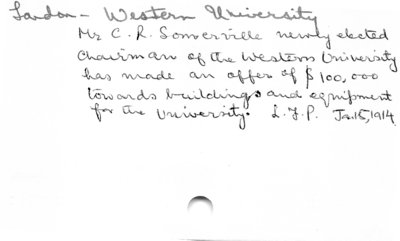 London - Western University
Mr C. R. Somerville newly elected
Chairman of the Western University
has made an offer of $100,000
towards buildings and equipment
for the University. L.F.P. Ja.15,1914